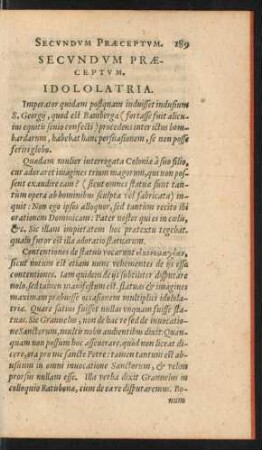 SECVNDVM PRÆCEPTVM. 289
SECVNDVM PRÆ-
CEPTVM.
IDOLOLATRIA.
Imperator quidam postquam induisset indusium
S. Georgij, quod est Bamberga (fortasse fuit alicu-
ius equitis senio confecti) procedens inter ictus bom-
bardarum, habebat hanc persuasionem, se non posse
feriri globo.
Quædam mulier interrogata Coloniæ à suo filio,
cur adoraret imagines trium magorum, qui non pos-
sent exaudire eam? (sicut omnes statuæ sunt tan-
tùm opera ab hominibus sculpta vel fabricata) in-
quit: Non ego ipsos alloquor, sed tantùm recito ibi
orationem Dominicam: Pater noster qui es in cœlis,
&c. Sic illam impietatem hoc prætextu tegebat.
qualis furor est illa adoratio statuarum.
Contentiones de statuis vocarunt
sicut etiam est etiam nunc vehementes de ijs esse
contentiones. Iam quidem de ijs subtiliter disputare
nolo, sed tamen manifestum est, statuas & imagines
maximam præbuisse occasionem multiplici idolola-
triæ. Quare satius fuisset nullas vnquam fuisse sta-
tuas. Sic Granuelus, non de hac re sed de inuocatio-
ne Sanctorum, multis nobis audientibus dixit: Quan-
quam non possum hoc asseuerare, quòd non liceat di-
cere, ora pro me sancte Petre: tamen tantum est ab-
usuum in omni inuocatione Sanctorum, & velim
prorsus nullam esse. Illa verba dixit Granuelus in
colloquio Ratisbonæ, cùm de ea re disputaremus. Bo-
num